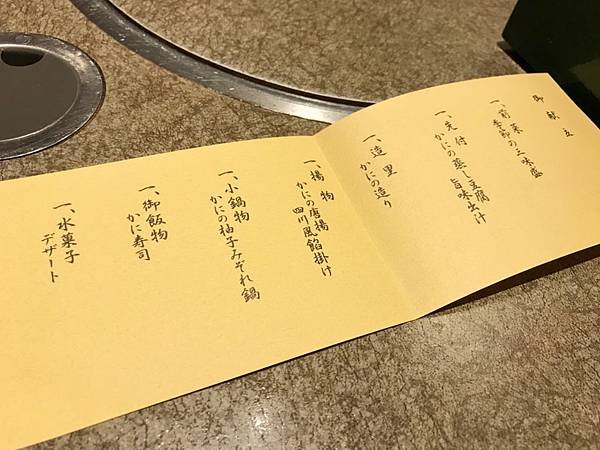 御献立
一、前菜
季節の三味盛
一、先付
かにの蒸し豆腐
旨味出汁
一、造里
かにの造り
一、揚物
かにの唐揚
四川風餡掛け
一、小鍋物
かにの柚子みぞれ鍋
一、御飯物
かに寿司
一、水菓子
デザート